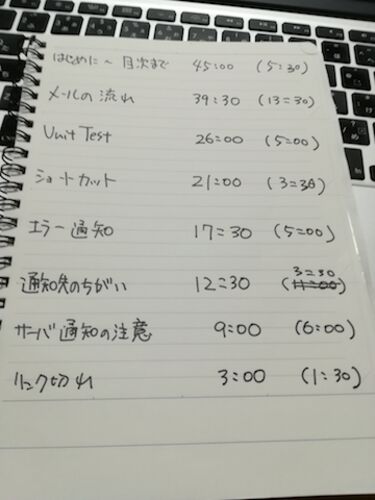 はじめに～目次まで 45:00 (5:30)
メールの流れ 39:30 (13:30)
Unit Test 26:00 (5:00)
ショートカット 21:00 (3:30)
エラー通知 17:30 (5:00)
3:30
通知先のちがい 12:30 (11:00)
サーバ通知の注意 9:00 (6:00)
リンク切れ 3:00 (1:30)